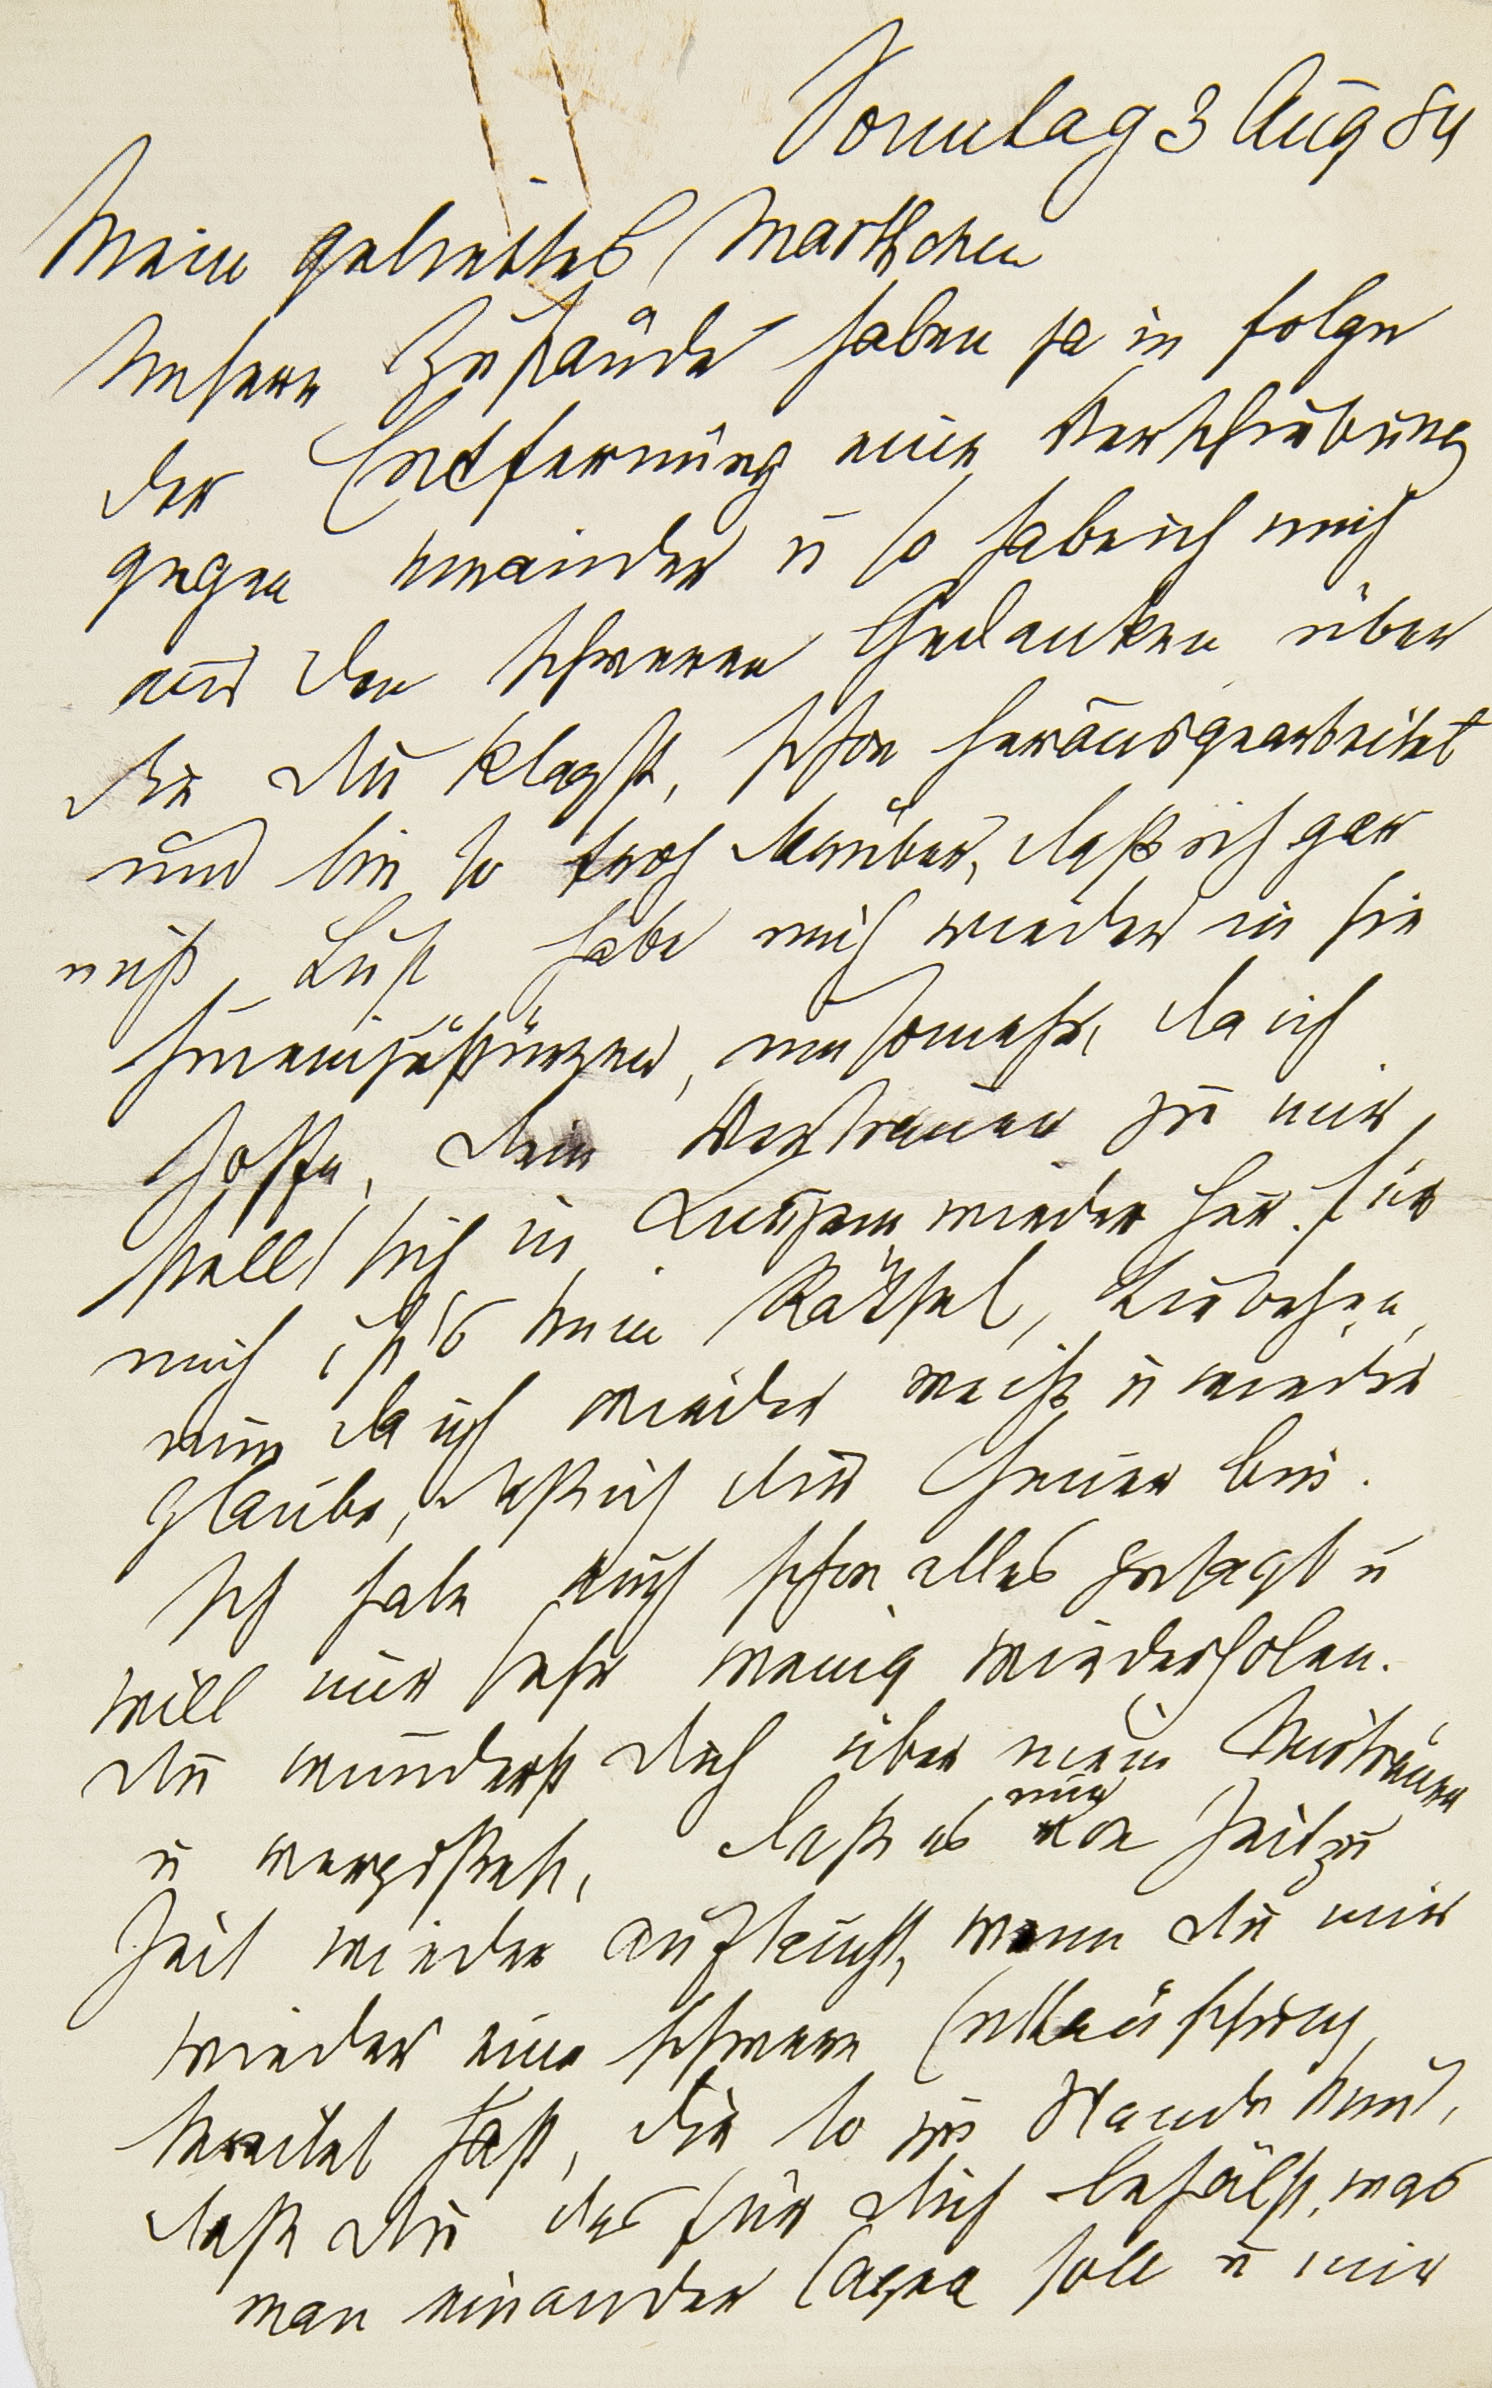 Sonntag 3 Aug 84
Mein geliebtes Marthchen
Unsere Zustände haben ja in folge
der Entfernung eine Verschiebung
gegen einander u so habe ich mich
aus den schweren Gedanken über
die Du klagst, schon herausgearbeitet
und bin so froh darüber, daß ich gar
nicht Lust habe mich wieder in sie
hineinzustürzen, umsomehr, da ich
hoffe, Dein Vertrauen zu mir
stellt sich in wieder her. Für
mich ist's kein Rätsel, Liebchen,
nun da ich wieder weiß u wieder
glaube, daß ich Dir theuer bin.
Ich habe auch schon alles gesagt u
will nur sehr wenig wiederholen.
Du wunderst Dich über mein Mistrauen
u vergißest, daß es nur von Zeit zu
Zeit wieder auftaucht, wenn Du mir
wieder eine schwere Enttäuschung
bereitet hast, die so zu Stande kam,
daß Du das für Dich behälst, was
man einander sagen soll u mir